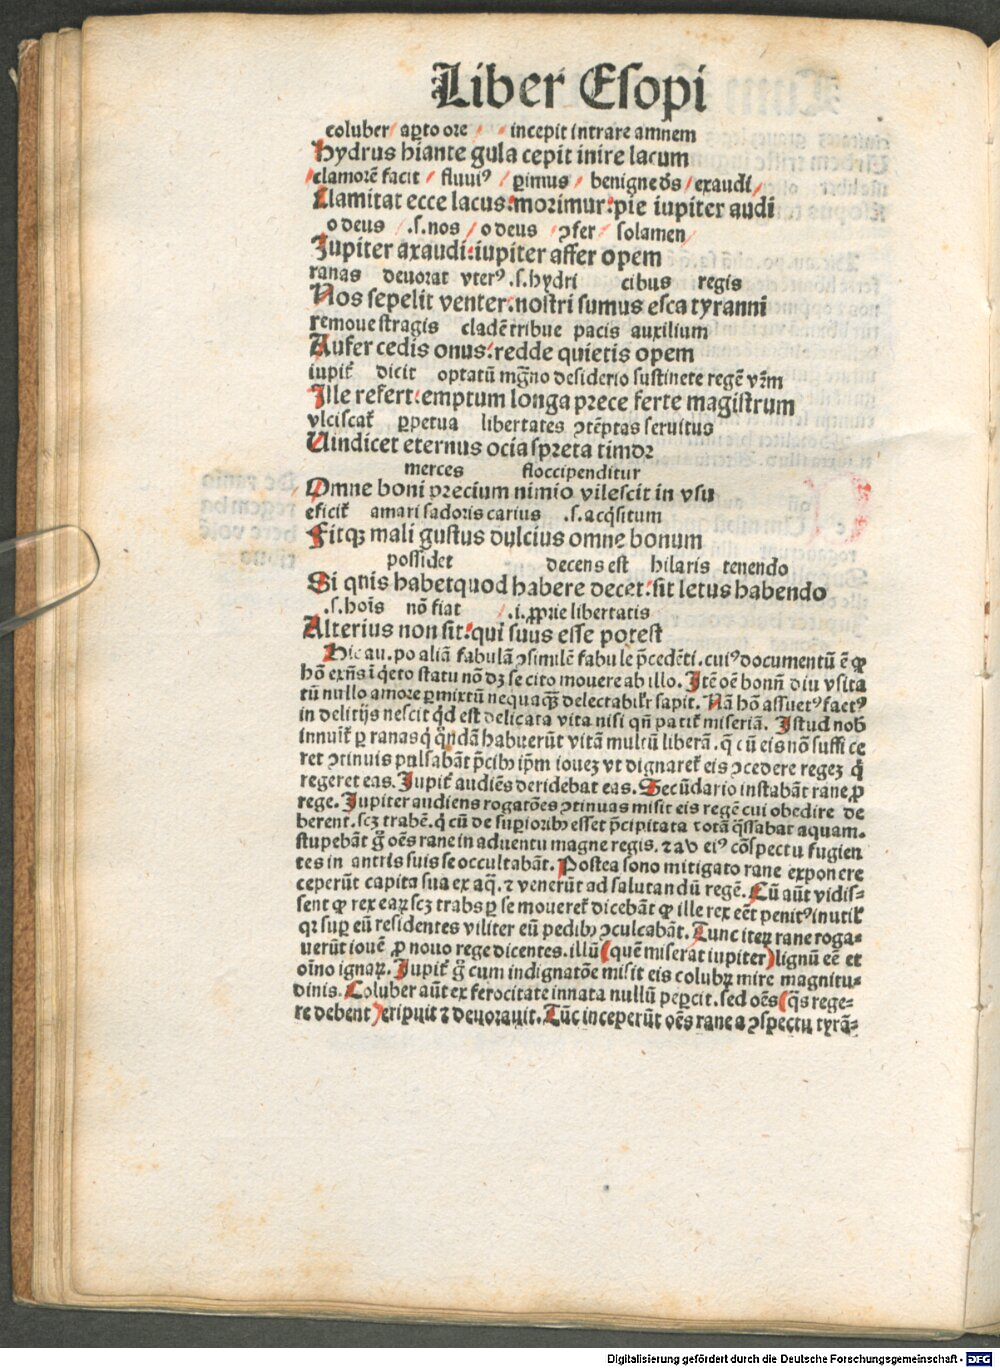 Liber Esopi
coluber / aꝑto ore / / incepit intrare amnem
Hydrus hiante gula cepit inire lacum
/clamorē facit / fluuiꝰ / pͥmus / benigne dš / exaudi /
Clamitat ecce lacus: morimur: pie iupiter audi
o deus / .s. nos / o deus ꝯfer / solamen /
Jupiter axaudi: iupiter affer opem
ranas deuorat vterꝰ .s. hydri cibus regis
Nos sepelit venter: nostri sumus esca tyranni
remoue stragis cladē tribue pacis auxilium
Aufer cedis onus: redde quietis opem
iupit̄ dicit optatū mḡno desiderio sustinete regē vr̄m
Ille refert: emptum longa prece ferte magistrum
vlciscat̄ ꝑpetua libertates ꝯtēptas seruituo
Uindicet eternus ocia spreta timor
merces floccipenditur
Omne boni precium nimio vilescit in vsu
efficit̄ amari sadoris carius .s. acq̄situm
Fitqꝫ mali gustus dulcius omne bonum
possidet decens est hilaris tenendo
Si qnis habet quod habere decet: sit letus habendo
.s. hoīs nō fiat / .i. ꝓprie libertatis
Alterius non sit: qui suus esse potest
Hic au. po aliā fabulā ꝯsimilē fabule p̄cedēti. cuiꝰ documentū ē ꝙ
hō exn̄s ī q̇eto statu nō dꝫ se cito mouere ab illo. Itē oē bonū diu vsita
tū nullo amore ꝑmixtū nequaq̄ꝫ delectabilr̄ sapit. Nā hō assuetꝰ factꝰ
in delitijs nescit q̇d est delicata vita nisi qn̄ patit̄ miseriā. Istud nob̄
innuit̄ ꝑ ranas q̇ q̄ndā habuerūt vitā multū liberā. q̄ cū eis nō suffice
ret ꝯtinuis pulsabāt p̄cibꝫ ip̄m iouez vt dignaret̄ eis ꝯcedere regez q̇
regeret eas. Jupit̄ audiēs deridebat eas. Secūdario instabāt rane ꝓ
rege. Jupiter audiens rogatōes ꝯtinuas misit eis regē cui obedire de
berent. scꝫ trabē. q̇ cū de suꝑioribꝫ esset p̄cipitata totā q̄ssabat aquam.
stupebāt ḡ oēs rane in aduentu magne regis. ⁊ ab eiꝰ cōspectu fugien
tes in antris suis se occultabāt. Postea sono mitigato rane exponere
ceperūt capita sua ex aq̄. ⁊ venerūt ad salutandū regē. Cū aūt vidis-
sent ꝙ rex eaꝝ scꝫ trabs ꝑ se moueret̄ dicebāt ꝙ ille rex eēt penitꝰ inutil̄
qꝛ suꝑ eū residentes viliter eū pedibꝫ ꝯculcabāt. Tunc iteꝝ rane roga-
uerūt iouē ꝓ nouo rege dicentes. illū (quē miserat iupiter) lignū eē et
oīno ignaꝝ. Jupit̄ ḡ cum indignatōe misit eis colubꝝ mire magnitu-
dinis. Coluber aūt ex ferocitate innata nullū peꝑcit. sed oēs (q̄s rege-
re debent) eripuit ⁊ deuorauit. Tūc inceperūt oēs rane a ꝯspectu tyrā-
Digitalisierung gefördert durch die Deutsche Forschungsgemeinschaft - DFG